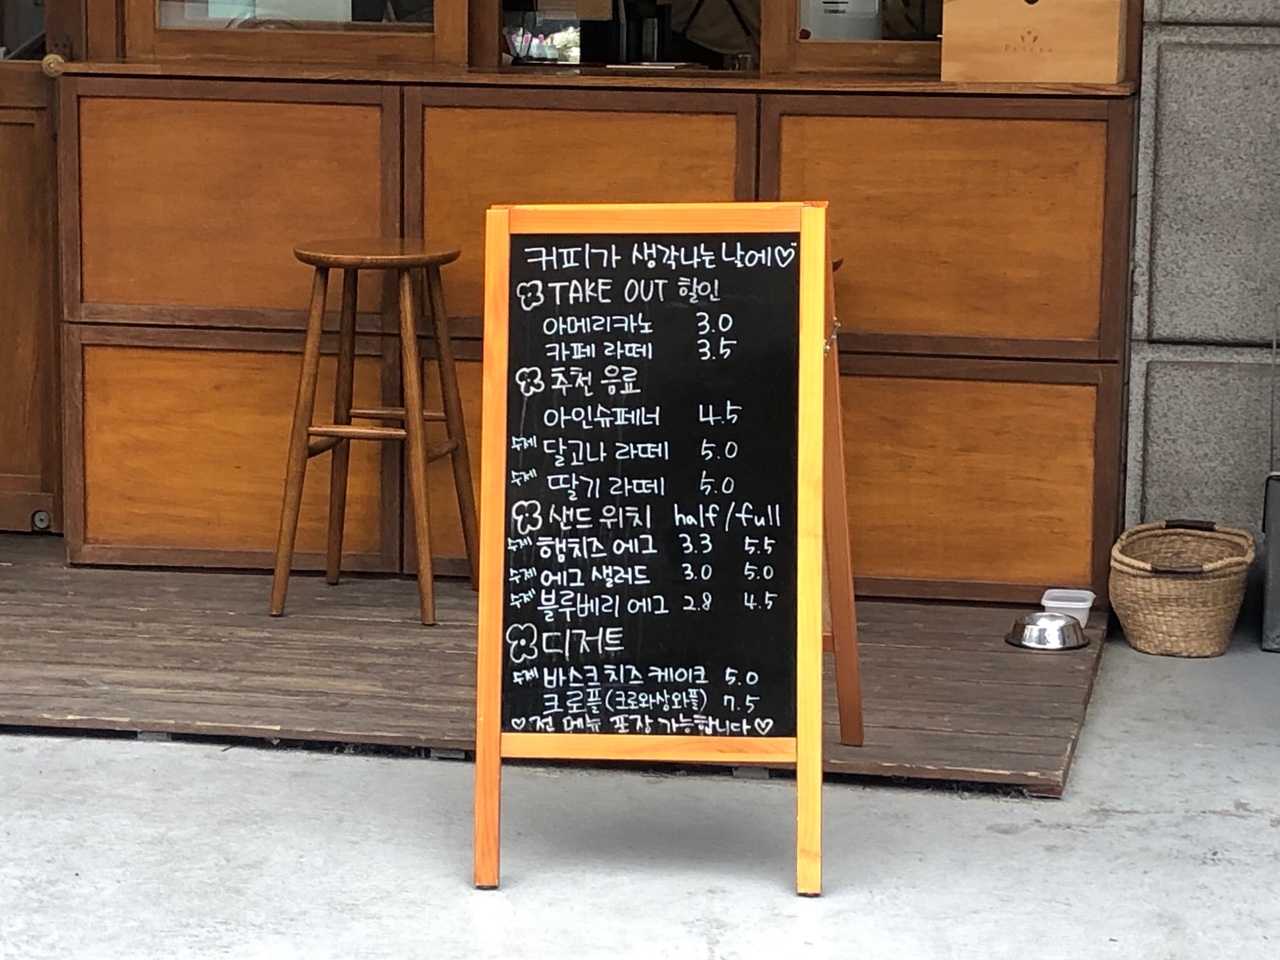 커피가 생각나는 날에♡
TAKE OUT 할인
아메리카노 3.0
카페 라떼 3.5
추천 음료
아인슈페너 4.5
수제 달고나 라떼 5.0
수제 딸기 라떼 5.0
샌드위치 half/full
수제 햄치즈 에그 3.3 5.5
수제 에그 샐러드 3.0 5.0
수제 블루베리 에그 2.8 4.5
디저트
수제 바스크 치즈 케이크 5.0
크로플(크로와상와플) 7.5
♡전 메뉴 포장 가능합니다♡